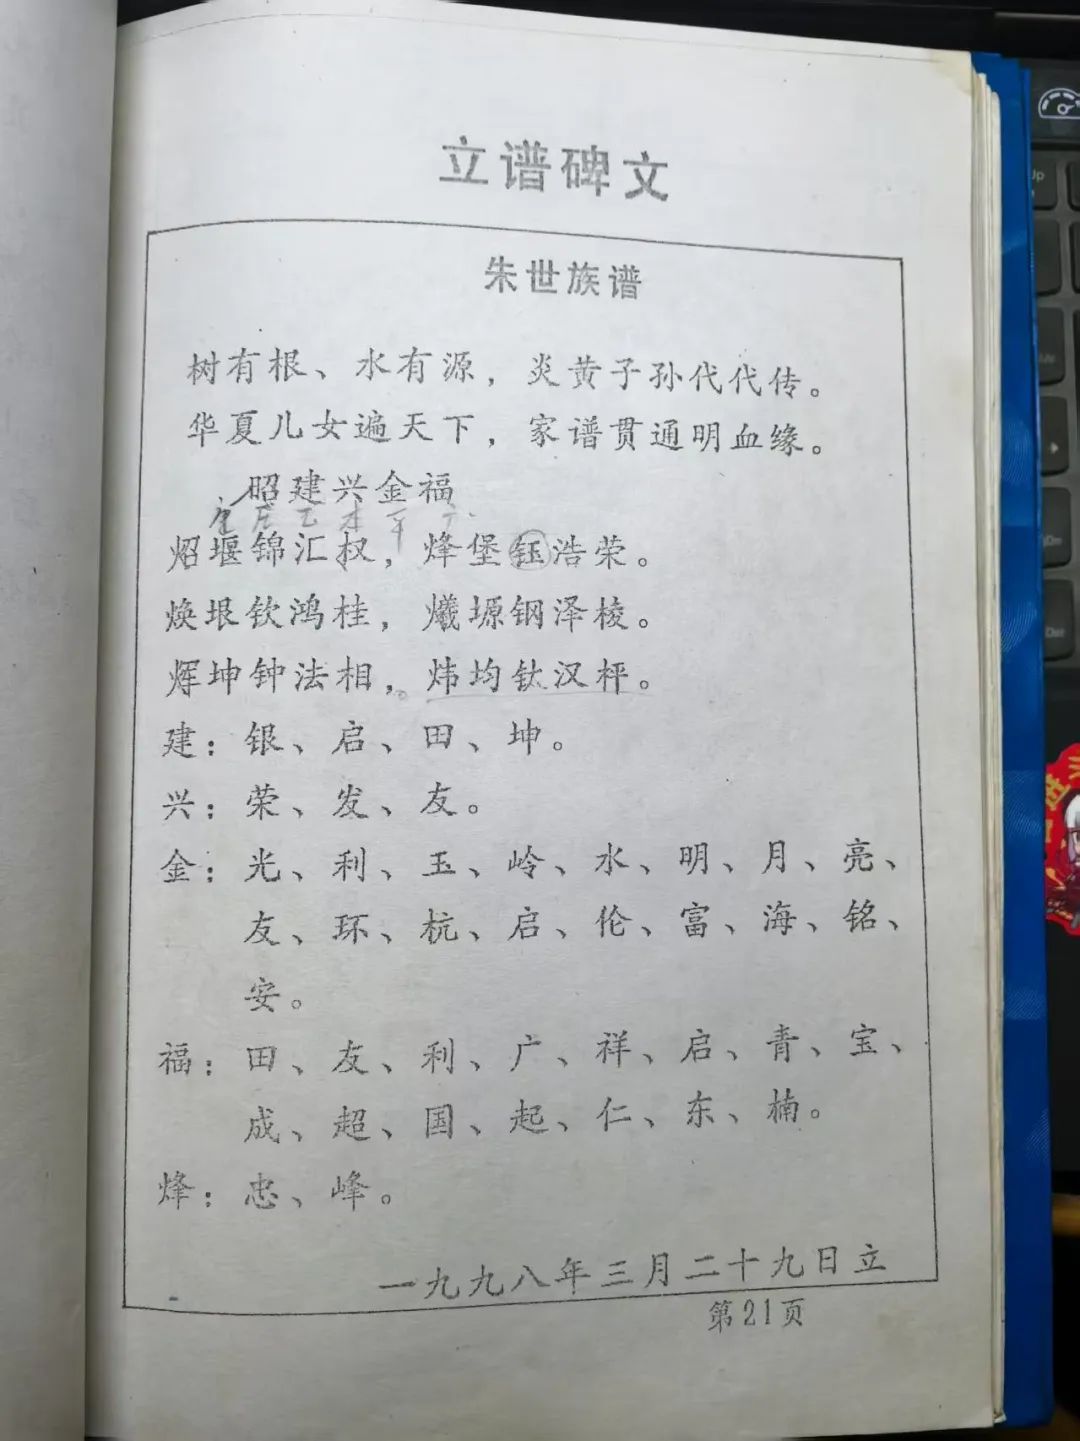 立谱碑文
朱世族谱
树有根、水有源，炎黄子孙代代传。
华夏儿女遍天下，家谱贯通明血缘。
昭建兴金福
炤堰锦汇权，烽堡钰浩荣。
焕垠钦鸿桂，爔塬钢泽棱。
辉坤钟法相，炜均钛汉枰。
建：银、启、田、坤。
兴：荣、发、友。
金：光、利、玉、岭、水、明、月、亮、
友、环、杭、启、伦、富、海、铭、
安。
福：田、友、利、广、祥、启、青、宝、
成、超、国、起、仁、东、楠。
烽：忠、峰。
一九九八年三月二十九日立
第21页